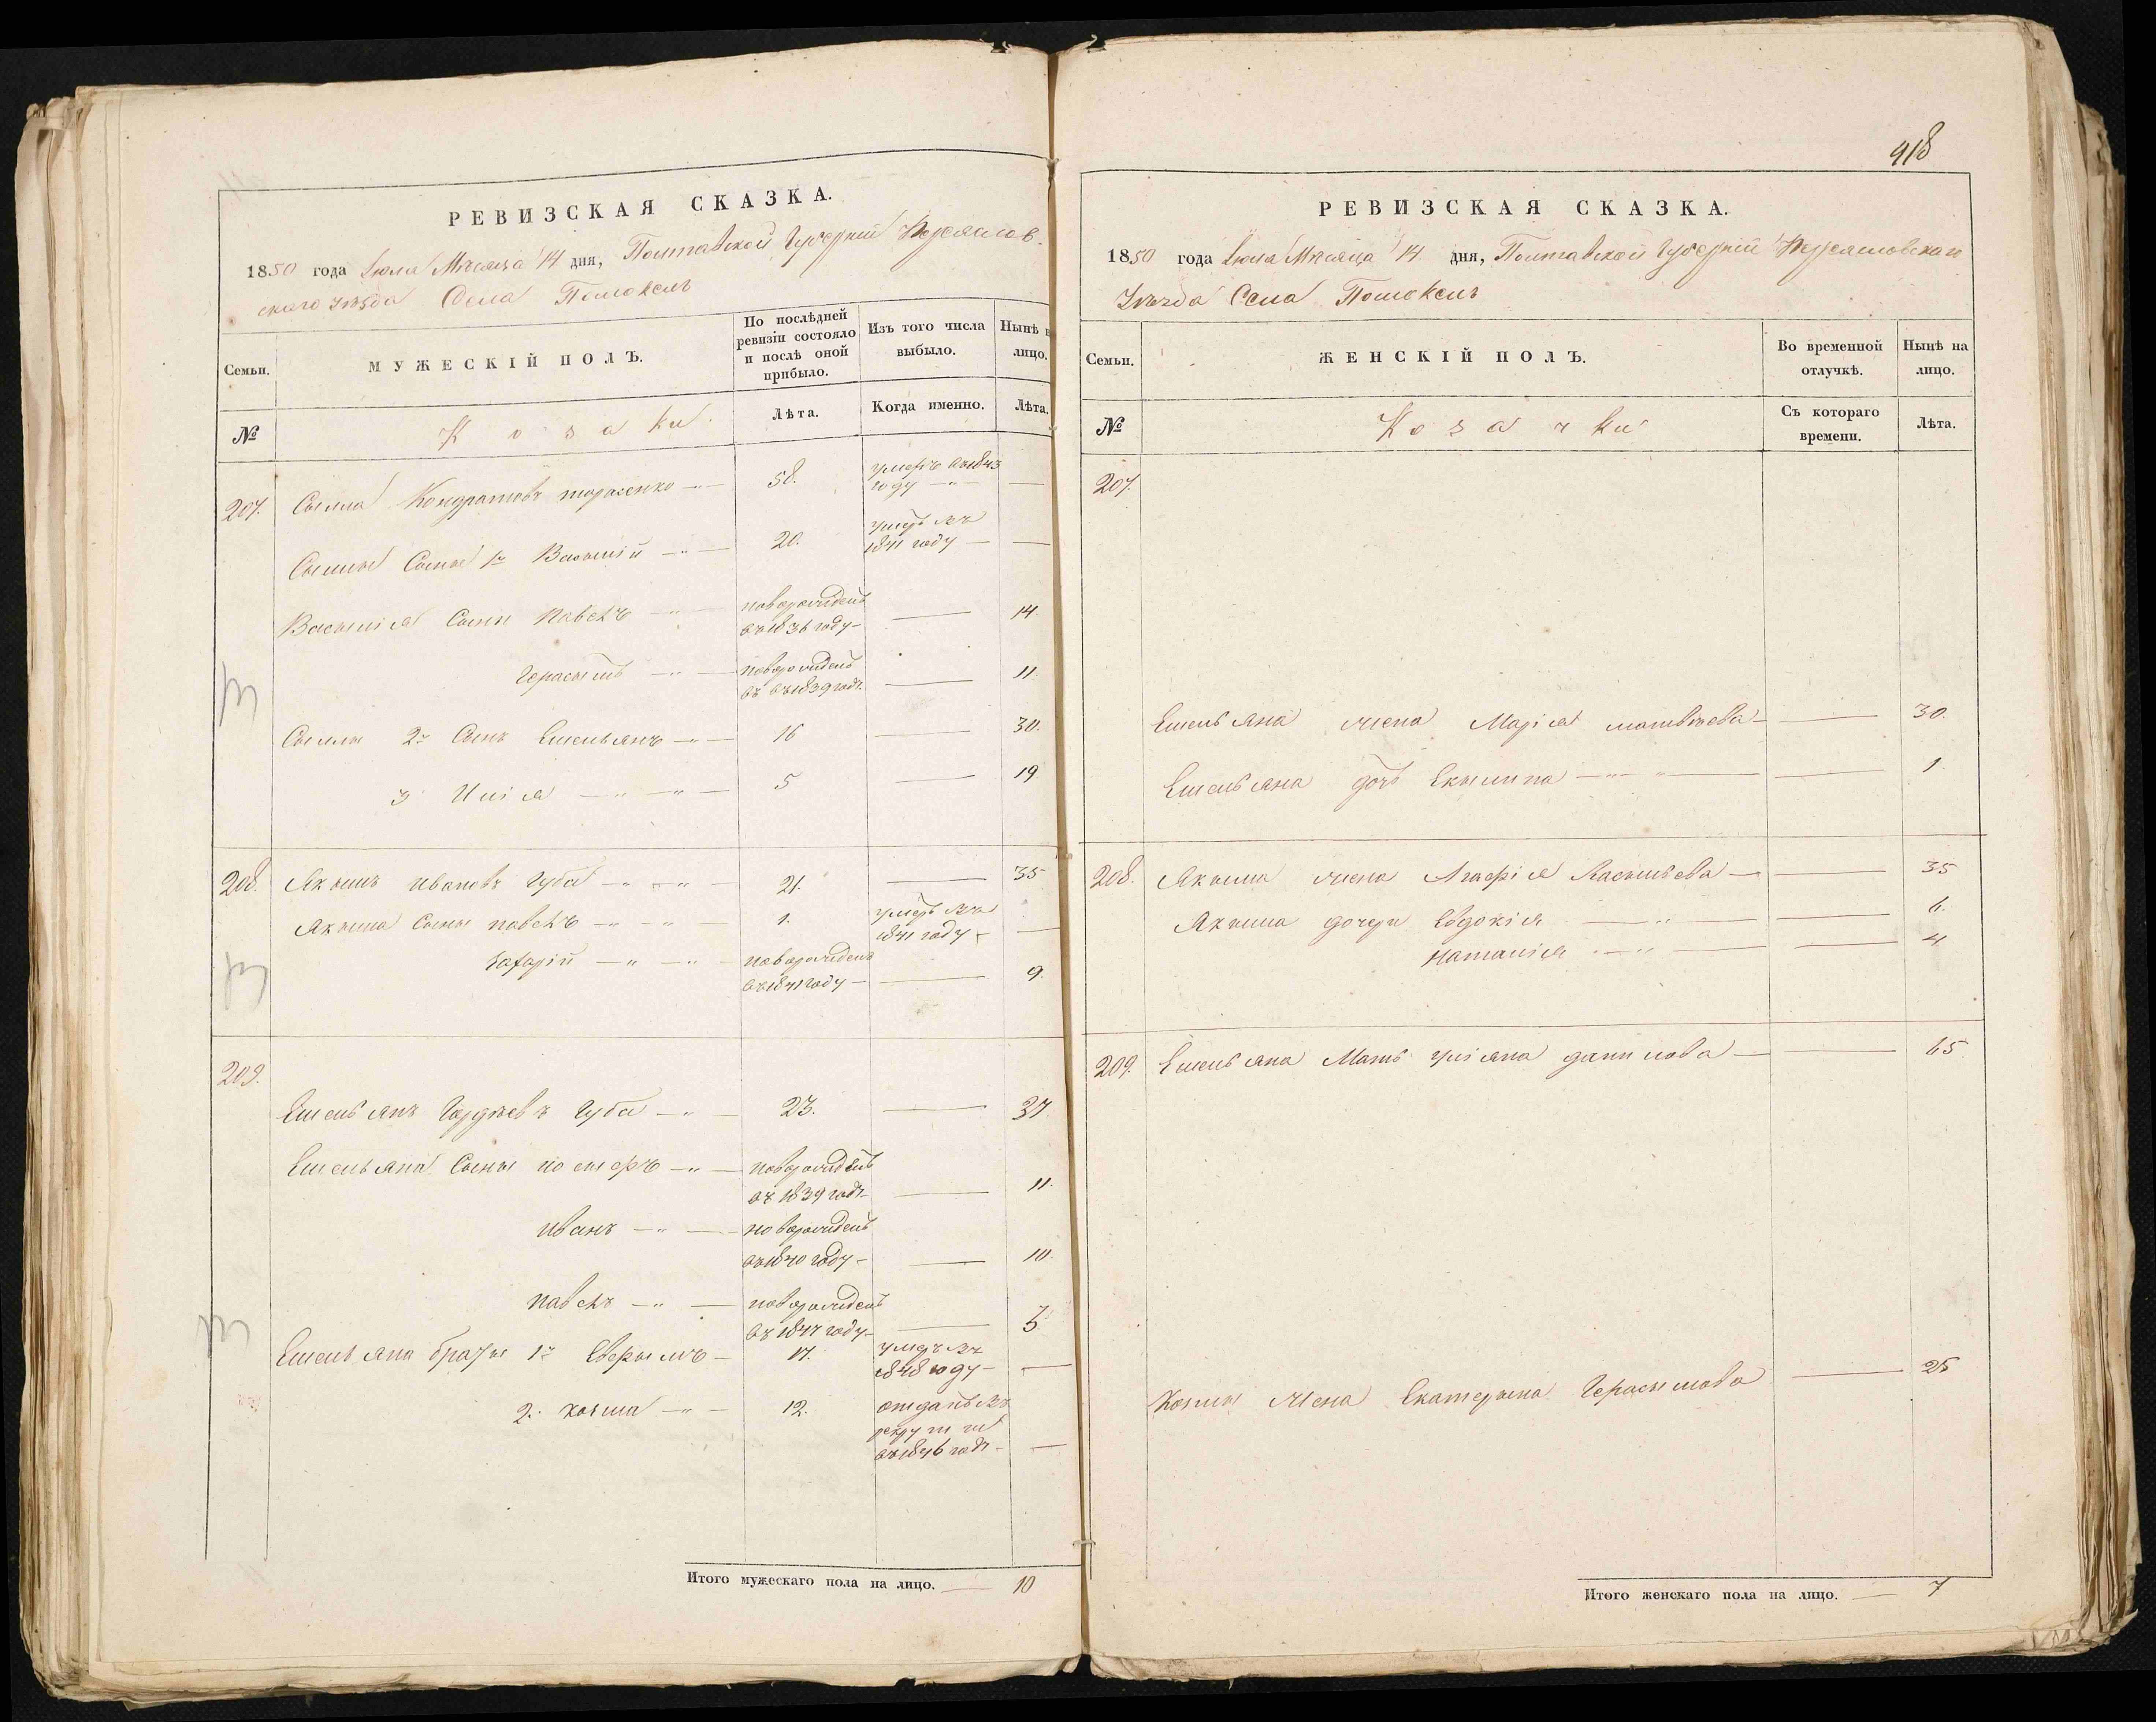 РЕВИЗСКАЯ СКАЗКА.
1850 года Іюля Мѣсяца 14 дня, Полтавской Губерніи Переяслов-
скаго уѣзда Села Помоклъ
Семьи.
МУЖЕСКІЙ ПОЛЪ.
По послѣдней ревизіи состояло и послѣ оной прибыло.
Изъ того числа выбыло.
Нынѣ на лицо.
№
Козаки
Лѣта.
Когда именно.
Лѣта.
207. Сыла Кондратовъ тарасенко 58. умеръ въ 1843 году —
Сылы Сыны 1й Василій 20. умеръ въ 1841 году —
Василія Сыны Павелъ новорожденъ въ 1836 году — 14.
Герасымъ новорожденъ въ 1839 годѣ — 11.
Сылы 2й Сынъ Емельянъ 16 — 30.
3 Илія 5 — 19
208. Якымъ Ивановъ Губа 21. — 35
Якыма Сыны павелъ 1. умеръ въ 1841 году —
Захарій новорожденъ въ 1841 году — 9.
209.
Емельянъ Гордѣевъ Губа 23. — 37.
Емельяна Сыны Іосыфъ новорожденъ въ 1839 годѣ — 11.
Иванъ новорожденъ въ 1840 году — 10.
павелъ новорожденъ въ 1847 году — 3
Емельяна братья 1й 17. умеръ въ 1848 году —
2. козма 12. отданъ въ рекруты въ 1846 годѣ —
Итого мужескаго пола на лицо. — 10
918
РЕВИЗСКАЯ СКАЗКА.
1850 года Іюля Мѣсяца 14 дня, Полтавской Губерніи Переясловскаго
Уѣзда Села Помоклъ
Семьи.
ЖЕНСКІЙ ПОЛЪ.
Во временной отлучкѣ.
Нынѣ на лицо.
№
Козачки
Съ котораго времени.
Лѣта.
207.
Емельяна жена Марія матвѣева — 30.
Емельяна дочь Екылина — 1.
208. Якыма жена Агафія Васильева — 35
Якыма дочери Евдокія — 6.
Наталія — 4
209. Емельяна Мать уліяна данилова — 65.
Козмы жена Екатерына Герасымова — 25
Итого женскаго пола на лицо. — 7